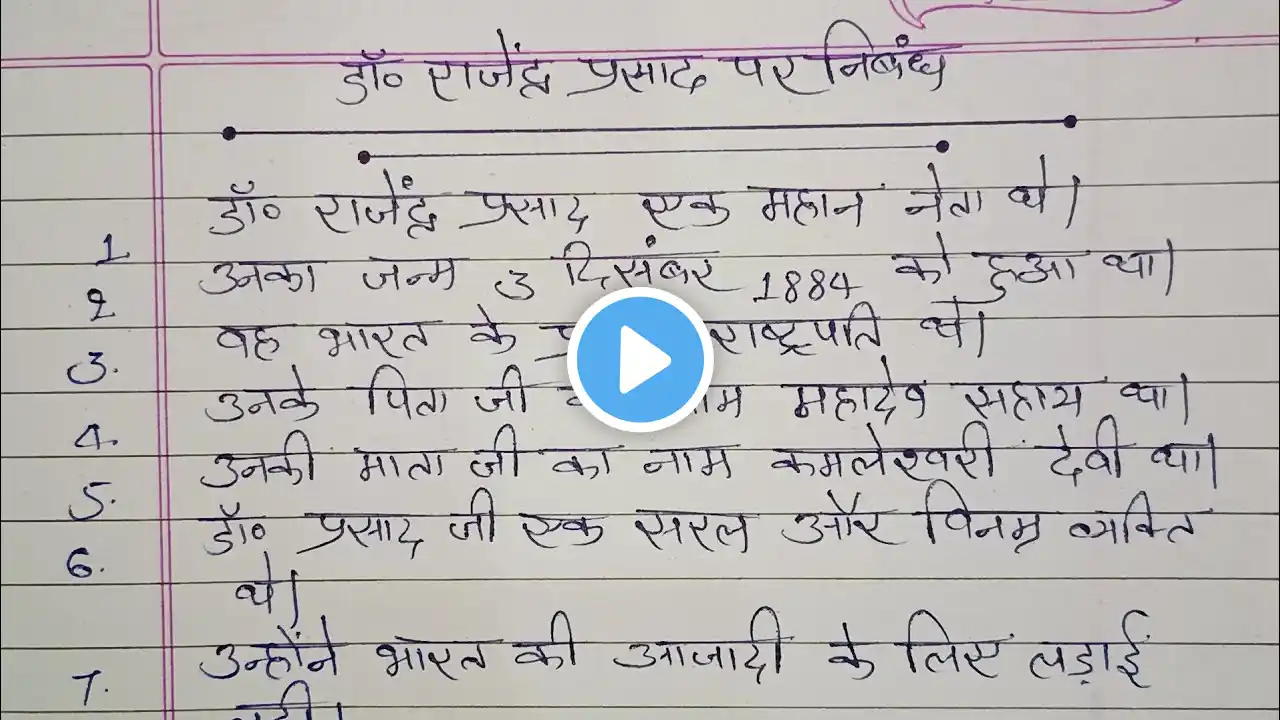 डॉ० राजेंद्र प्रसाद पर निबंध
1 डॉ० राजेंद्र प्रसाद एक महान नेता थे।
2 उनका जन्म 3 दिसंबर 1884 को हुआ था।
3. वह भारत के राष्ट्रपति थे।
4. उनके पिता जी महादेव सहाय था।
5. उनकी माता जी का नाम कमलेश्वरी देवी था।
6. डॉ० प्रसाद जी एक सरल और विनम्र व्यक्ति
थे।
7. उन्होंने भारत की आजादी के लिए लड़ाई